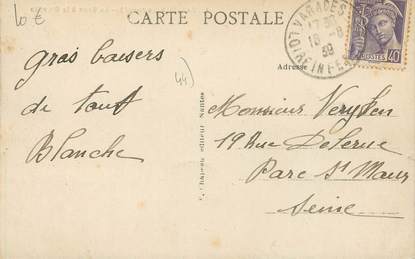 10 €
CARTE POSTALE
VARADES
17 30
18 -8
39
LOIRE INFRE
POSTES 40
Adresse
gros baisers
de tout
Blanche
44)
Chapeau éditeur Nantes
Monsieur
19 Rue
Parc St Maur
Seine